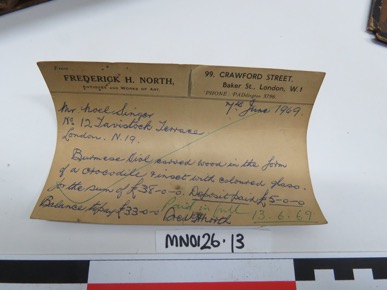 From
FREDERICK H. NORTH,
ANTIQUES AND WORKS OF ART
99, CRAWFORD STREET,
Baker St., London, W.1
PHONE - PADdington 5786
7th June 1969.
Mr Noel Singer
No 12, Tavistock Terrace
London. N.19.
Burmese Viol carved wood in the form
of a crocodile & inset with coloured glass.
for the sum of £38-0-0. Deposit paid £5-0-0
Balance to pay £33-0-0
Paid in full
13.6.69
Fred H North
MN0126.13